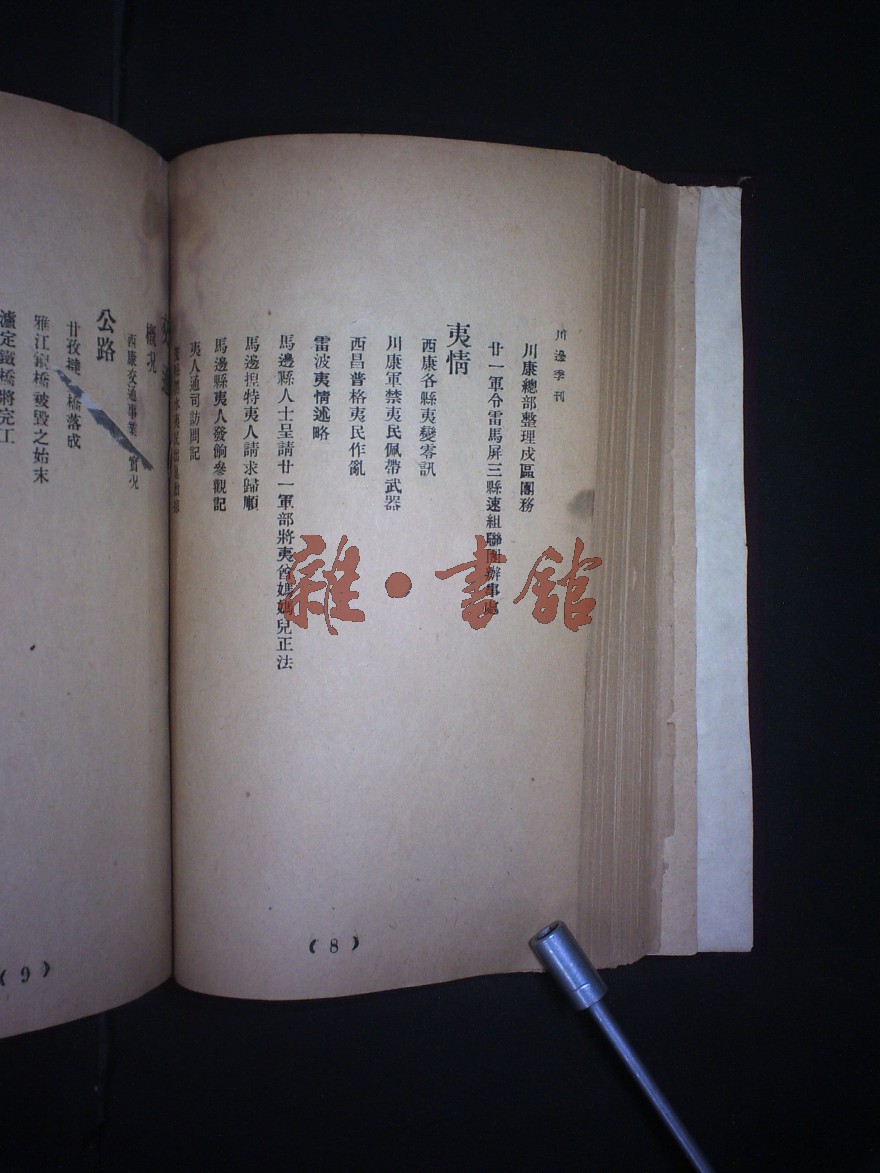 川邊季刊
川康總部整理戍區團務
廿一軍令雷馬屏三縣速組聯團辦事處
夷情
西康各縣夷變零訊
川康軍禁夷民佩帶武器
西昌普格夷民作亂
雷波夷情述略
馬邊縣人士呈請廿一軍部將夷酋媽媽兒正法
馬邊挰特夷人請求歸順
馬邊縣夷人發餉參觀記
夷人通司訪問記
(8)
概況
西康交通事業 實况
公路
甘孜 橋落成
雅江鋼橋被毀之始末
瀘定鐵橋將完工
(9)
雜·書館